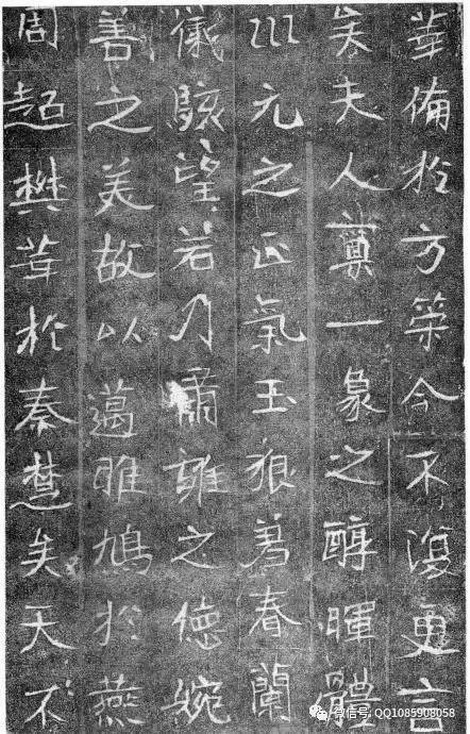 華備於方策今不復更言
矣夫人稟一象之醇暉體
巛元之正氣玉春蘭
儀駭望若乃肅雍之德婉
善之美故以邁雎鳩於燕
周超樊莘於秦楚矣天不
微信号: QQ1085908058